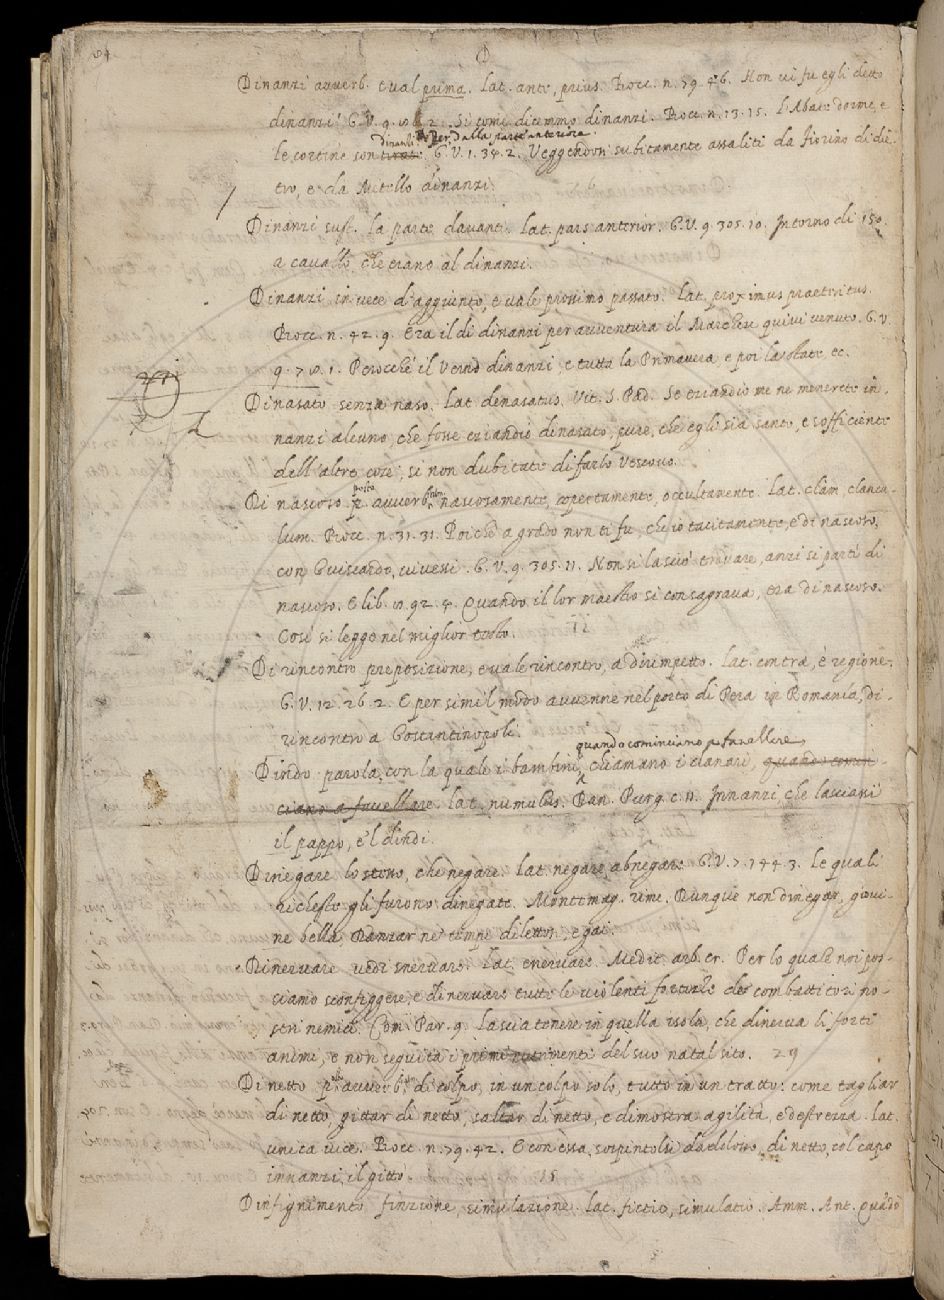 D
Dinanzi avverb. e val prima. Lat. ante, prius. Bocc. n. 79. 46. Non vi fu egli detto
dinanzi? G.V. 9. 2. Si come dicemmo dinanzi. Bocc. n. 13. 15. L'Abate dorme, e
dinanzi Per dalla parte anteriore.
le cortine son tirate. G.V. 1. 34. 2. Veggendosi subitamente assaliti da Fiorino di die-
tro, e da Metello dinanzi.
Dinanzi sust. la parte davanti. Lat. pars anterior. G.V. 9. 305. 10. Intorno di 150.
a cavallo che erano al dinanzi.
Dinanzi in vece d'aggiunto, e vale prossimo passato. Lat. proximus praeteritus.
Bocc. n. 42. 9. Era il di dinanzi per avventura il Marchese quivi venuto. G.V.
9. 78. 1. Perocchè il Verno dinanzi, e tutta la Primavera, e poi la state, ec.
Dinasato senza naso. Lat. denasatus. Vit. S. Pad. Se eziandio me ne menerete in-
nanzi alcuno, che fosse eziandio dinasato, pure, che egli sia santo, e sofficiente
dell'altre cose, si non dubitate di farlo Vescovo.
posto
Di nascoso p avverb. nascosamente, copertamente, occultamente. Lat. clàm, clancu-
lum. Bocc. n. 31. 31. Poichè a grado non ti fu, che io tacitamente, e di nascoso,
con Guiscardo, vivessi. G.V. 9. 305. 11. Non si lasciò trovare, anzi si partì di
nascoso. E lib. 8. 92. 4. Quando il lor maestro si consagrava, era di nascoso.
Così si legge nel miglior testo. 12
Di rincontro preposizione, e vale rincontro, a dirimpetto. Lat. contra, è regione.
G.V. 12. 26. 2. E per simil modo avvenne nel porto di Pera in Romanía, di-
rincontro a Gostantinopoli.
quando cominciano p favellare
Dindo parola, con la quale i bambini, chiamano i danari, quando comin-
ciano a favellare. Lat. nummulus. Dan. Purg. c. 11. Innanzi, che lasciassi
il pappo, e'l dindi.
Dinegare lo stesso, che negare. Lat. negare, abnegare. G.V. 7. 144. 3. Le quali
richeste gli furono dinegate. Montemag. rime. Dunque non dinegar, giovi-
ne bella, Danzar ne' tempi dilettosi, e gai.
Dinervare vedi snervare. Lat. enervare. Medic. arb. cr. Per lo quale noi pos-
siamo sconfiggere, e dinervare tutte le violenti fortezze de' combattitori no-
stri nemici. Com. Par. 9. Lascia tenere in quella isola, che dinerva li forti
animi, e non seguita i primi nutrimenti del suo natal sito. 29
Di netto p. avverb. di colpo, in un colpo solo, tutto in un tratto: come tagliar
di netto, gittar di netto, saltar di netto, e dimostra agilità, e destrezza. Lat.
unica vice. Bocc. n. 79. 42. E con essa, sospintolsi da dosso, di netto, col capo
innanzi, il gittò. 15
Dinfignimento finzione, simulazione. Lat. fictio, simulatio. Amm. Ant. Quãdo